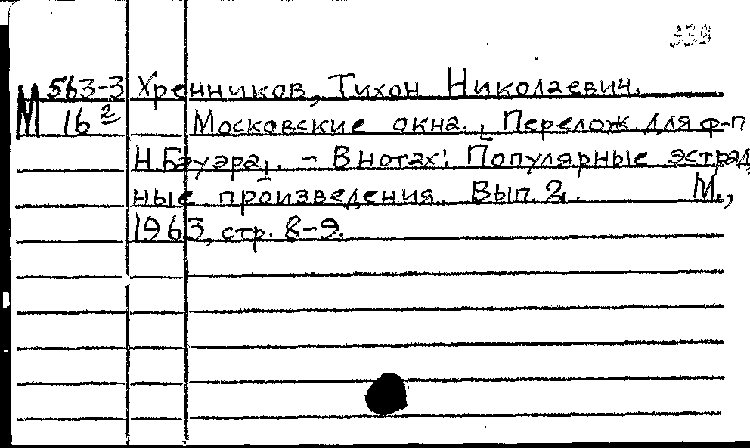 939
М 563-3 Хренников, Тихон Николаевич.
16² Московские окна. [Перелож для ф-п
Н. Бауэра]. - В нотах: Популярные эстрад
ные произведения. Вып. 2. М.,
1963, стр. 8-9.